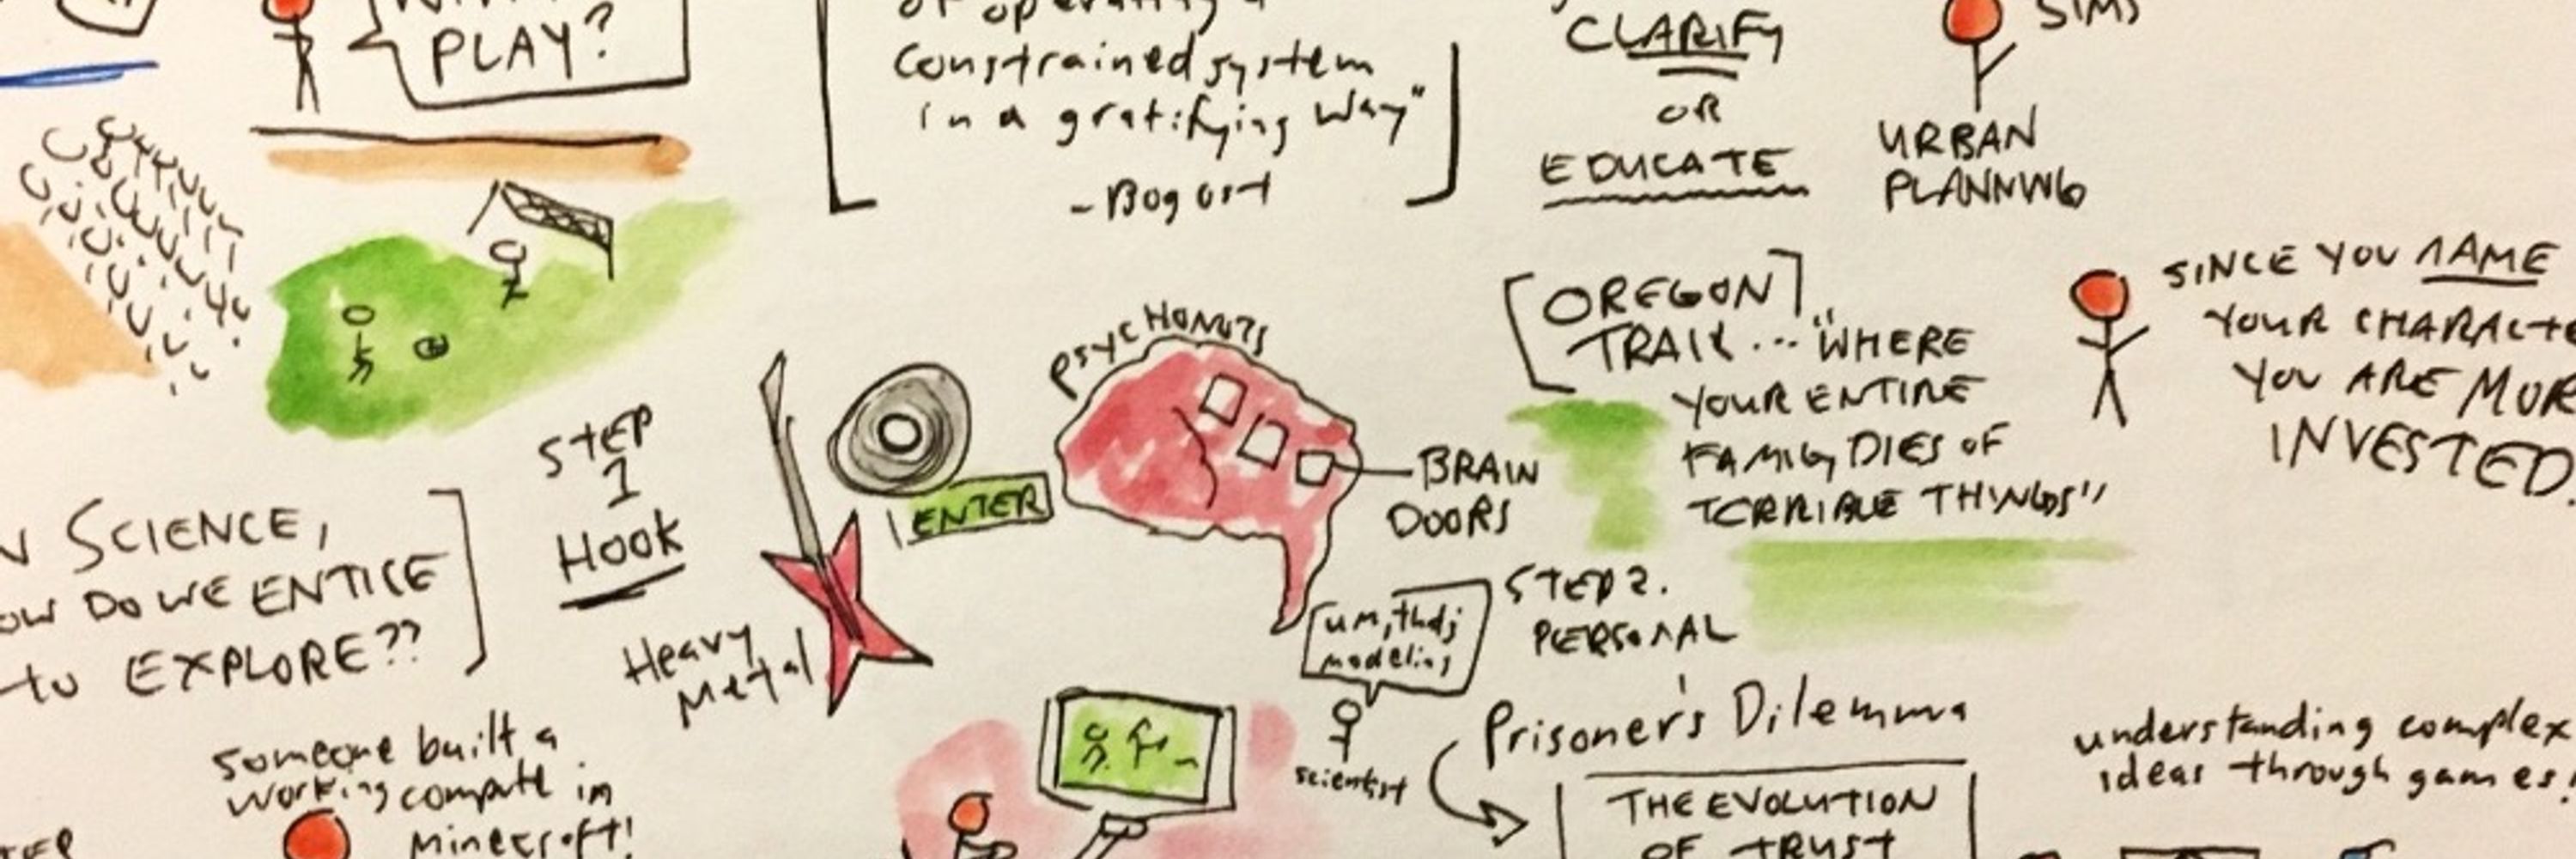 PLAY?
of operating a
constrained system
in a gratifying way"
- Bogost
CLARIFY
OR
EDUCATE
SIMS
URBAN
PLANNING
[OREGON]
TRAIL... "WHERE
YOUR ENTIRE
FAMILY DIES OF
TERRIBLE THINGS"
SINCE YOU NAME
YOUR CHARACTE
YOU ARE MOR
INVESTED.
PSYCHONUTS
BRAIN
DOORS
ENTER
STEP
1
HOOK
HEAVY
METAL
SCIENCE,
OW DO WE ENTICE
to EXPLORE??
um, that's
modeling
scientist
STEP 2.
PERSONAL
Prisoner's Dilemma
THE EVOLUTION
OF TRUST
understanding complex
ideas through games!
someone built a
working compute in
minecraft!